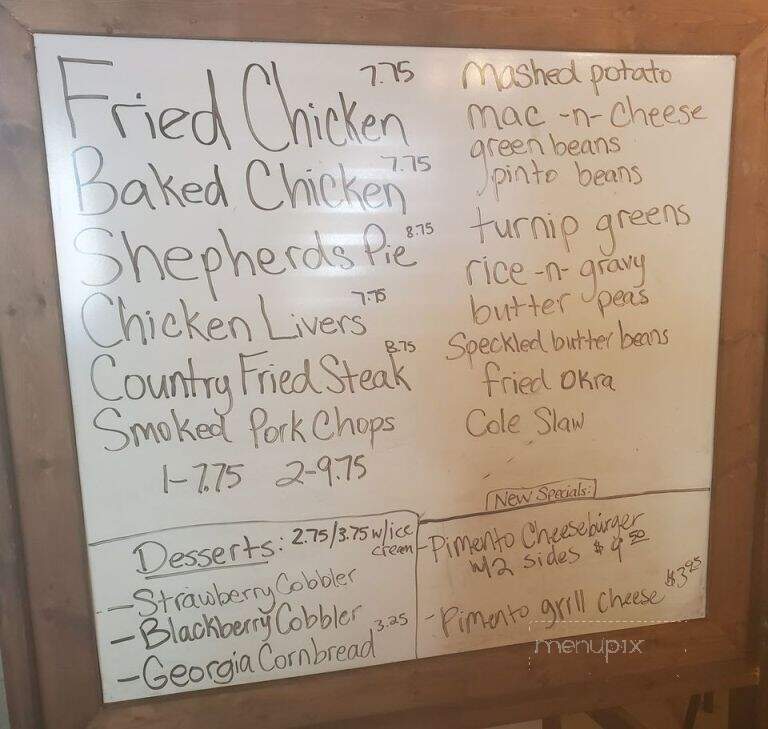 Fried Chicken 7.75
Baked Chicken 7.75
Shepherds Pie 8.75
Chicken Livers 7.75
Country Fried Steak 8.75
Smoked Pork Chops
1-7.75 2-9.75
mashed potato
mac -n- cheese
green beans
pinto beans
turnip greens
rice -n- gravy
butter peas
Speckled butter beans
fried okra
Cole Slaw
Desserts: 2.75/3.75 w/ice
cream
- Strawberry Cobbler
- Blackberry Cobbler
- Georgia Cornbread 3.25
New Specials:
- Pimento Cheeseburger
w/2 sides $9.50
- Pimento grill cheese $3.95
menupix